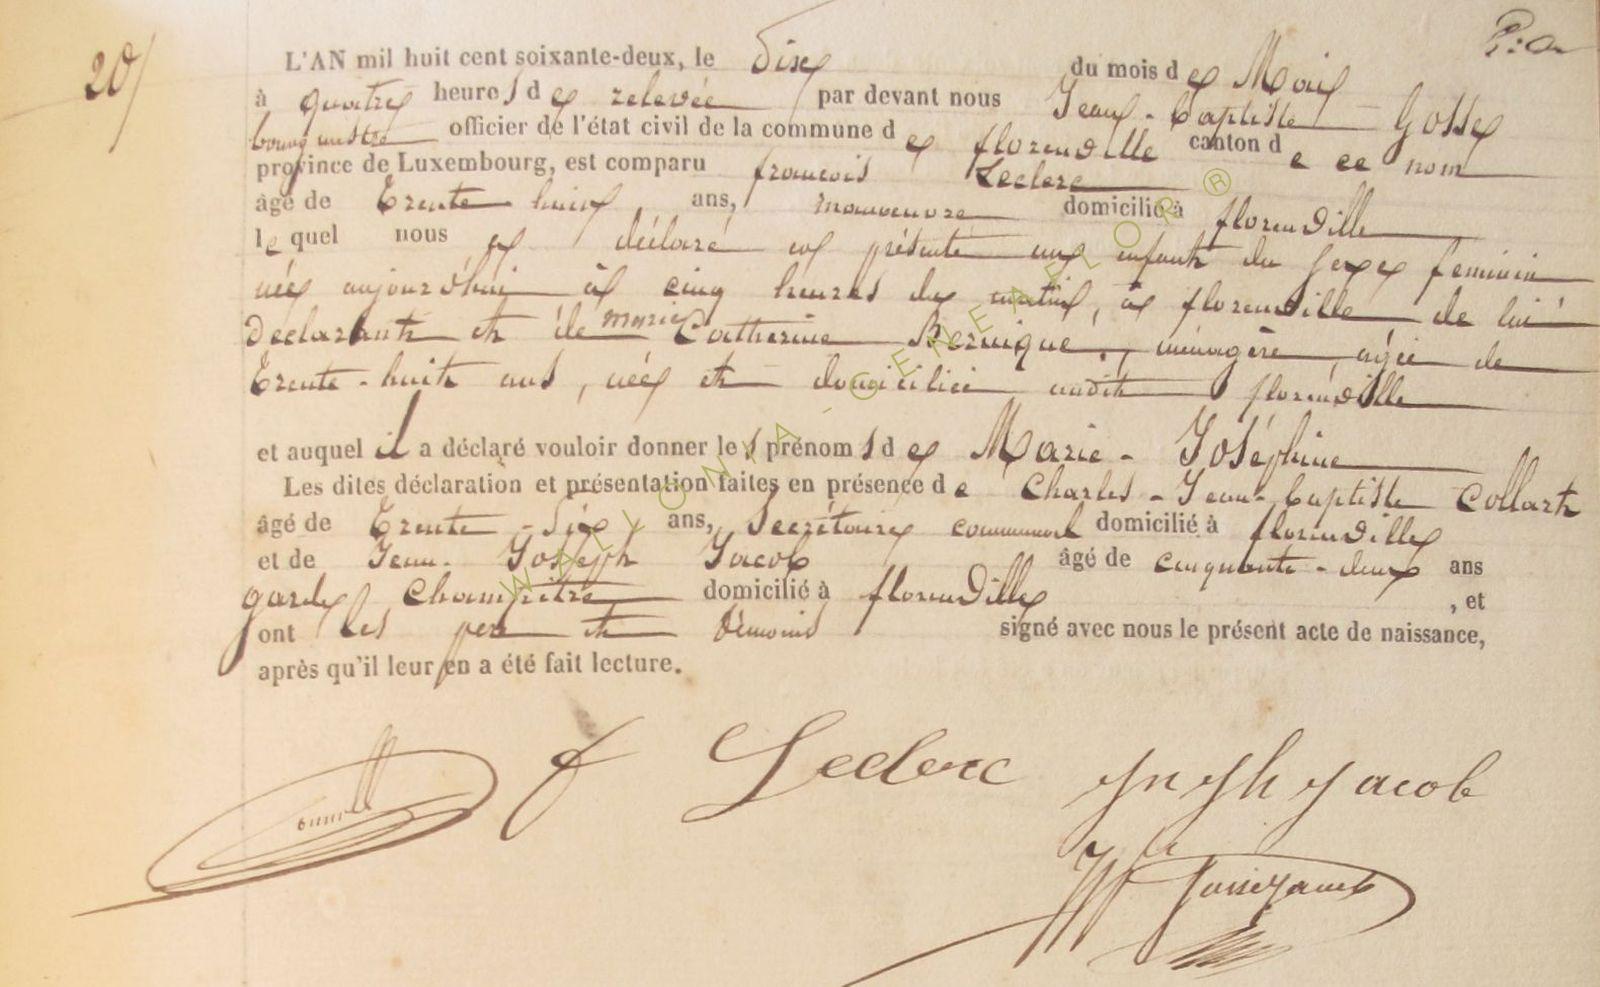 20
L'AN mil huit cent soixante-deux, le Dix du mois de Mai
à quatre heures de relevée par devant nous Jean-Baptiste Gosse
bourgmestre officier de l'état civil de la commune de florenville canton de ce nom
province de Luxembourg, est comparu francois Leclerc
âgé de Trente huit ans, manoeuvre domicilié à florenville
lequel nous a déclaré et présenté un enfant du sexe feminin
née aujourd'hui à cinq heures du matin, à florenville de lui
déclarant et de marie Catherine Bernique, ménagère, agée de
Trente-huit ans, née et domiciliée audit florenville
et auquel il a déclaré vouloir donner les prénoms de Marie-Joséphine
Les dites déclaration et présentation faites en présence de Charles-Jean-Baptiste Collart
âgé de Trente-Six ans, Secrétaire communal domicilié à florenville
et de Jean-Joseph Jacob âgé de cinquante-deux ans
garde Champêtre domicilié à florenville, et
ont les père et témoins signé avec nous le présent acte de naissance,
après qu'il leur en a été fait lecture.
f Leclerc Jn Jph Jacob
WALLONIA-GENEAFLOR ®